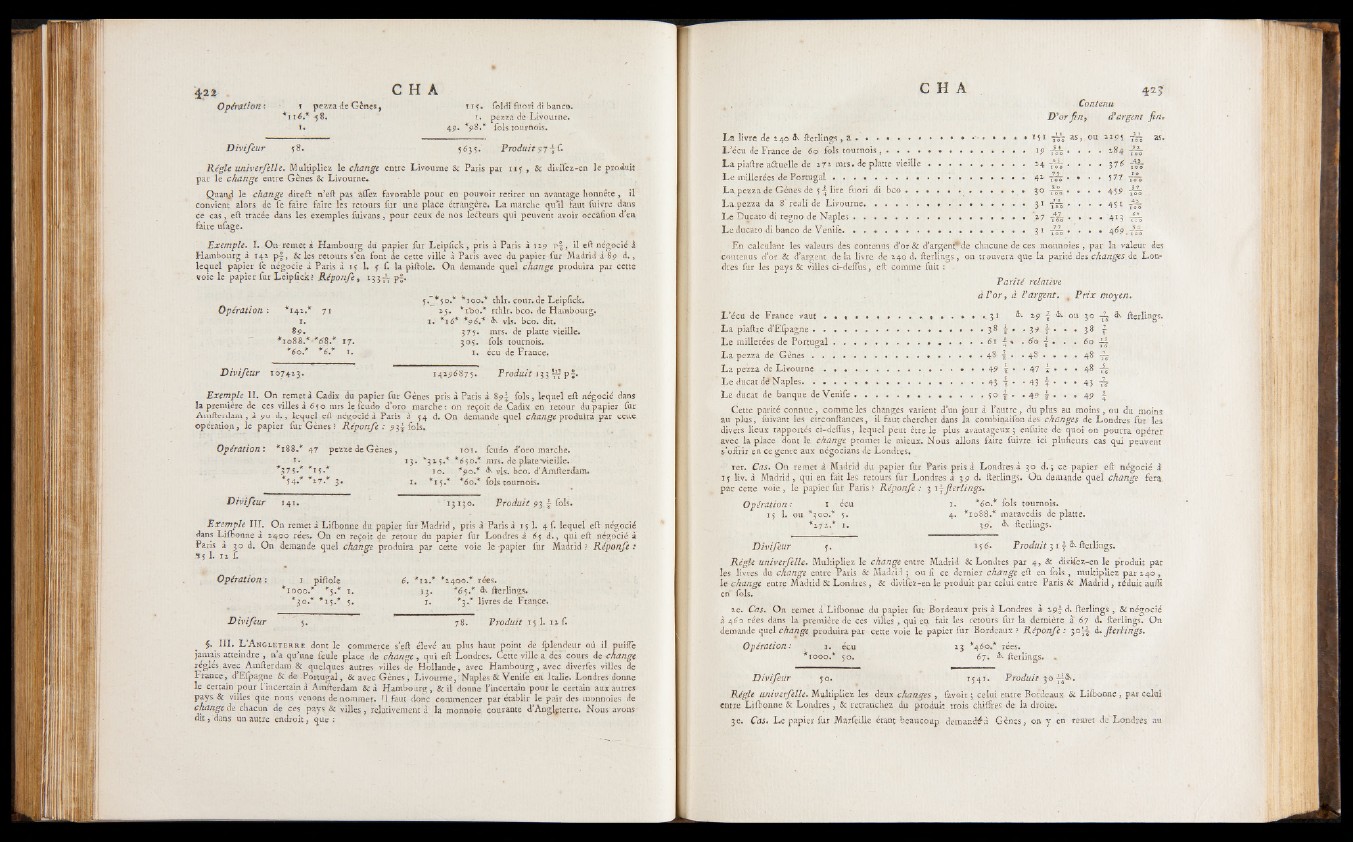 422 CHA
Opération : 1 pezza de Gènes, 115. soldi fuori di banco.
*116.* 58. 1. pezza de Livourne.
1. 49. *98.* sols tournois.
Diviseur 58. 5635. Produit 97 s.
Régle universelle. Multipliez le change entre Livourne & Paris par 115, & divisez-en le produit
par le change entre Gènes & Livourne.
Quand le change direct n'est pas assez favorable pour en pouvoir retirer un avantage honnête, il
convient alors de se faire faire les retours sur une place étrangère. La marche qu'il faut suivre dans
ce cas, est tracée dans les exemples suivans, pour ceux de nos lecteurs qui peuvent avoir occasion d'en
faire usage.
Exemple. I. On remet à Hambourg du papier sur Leipsick, pris à Paris à 129 p°, est négocié à
Hambourg à 142 p°, & les retours s'en font de cette ville à Paris avec du papier sur Madrid à 89 d.,
lequel papier se négocie à Paris à 15 l. 5 s. la pistole. On demande quel change produira par cette
voie le papier sur Leipsick? Réponse, 133 p°.
5. *50.* *100.* thlr. cour. de Leipsick.
Opération : *142.* 71 25. *100.* rthlr. bco. de Hambourg.
1. 1. *16* *96.* vls. bco. dit.
89. 375. mrs. de platte vieille.
*1088.* *68.* 17. 305. sols tournois.
*60.* *6.* 1. 1. écu de France.
Diviseur 107423. 14296875. Produit 133 p°.
Exemple II. On remet à Cadix du papier sur Gènes pris à Paris à 89 sols, lequel est négocié dans
la première de ces villes à 650 mrs le scudo d'oro marche : on reçoit de Cadix en retour du papier sur
Amsterdam, à 90 d., lequel est négocié à Paris à 54 d. On demande quel change produira par cette
opération, le papier sur Gènes? Réponse : 93 sols.
Opération : *188.* 47 pezze de Gènes, 101. scudo d'oro marche.
1. 13. *325.* *650.* mrs. de platte vieille.
*375.* *15.* 10. *90.* vls. bco. d'Amsterdam.
*54.* *27.* 3. 1. *15.* *60.* sols tournois.
Diviseur 141. 13130. Produit 93 sols.
Exemple III. On remet à Lisbonne du papier sur Madrid, pris à Paris à 15 l. 4 s. lequel est négocié
dans Lisbonne à 2400 rées. On en reçoit de retour du papier sur Londres à 65 d., qui est négocié à
Paris à 30 d. On demande quel change produira par cette voie le papier sur Madrid? Réponse :
15 l. 12 s.
Opération : 1 pistole 6. *12.* *2400.* rées.
*1000.* *5.* 1. 13. *65.* sterlings.
*30.* *15.* 5. 1. *3.* livres de France.
Diviseur 5. 78. Produit 15 l. 12 s.
§. III. L'ANGLETERRE dont le commerce s'est élevé au plus haut point de splendeur où il puisse
jamais atteindre, n'a qu'une seule place de change, qui est Londres. Cette ville a des cours de change
réglés avec Amsterdam & quelques autres villes de Hollande, avec Hambourg, avec diverses villes de
France, d'Espagne & de Portugal, & avec Gènes, Livourne, Naples & Venise en Italie. Londres donne
le certain pour l'incertain à Amsterdam & à Hambourg, & il donne l'incertain pour le certain aux autres
pays & villes que nous venons de nommer. Il faut donc commencer par établir le pair des monnoies de
change de chacun de ces pays & villes, relativement à la monnoie courante d'Angleterre. Nous avons
dit, dans un autre endroit, que :
CHA 423
Contenu
D'or fin, d'argent fin.
La livre de 240 sterlings, a 151 as, ou 2295 as.
L'écu de France de 60 sols tournois, 19 284
La piastre actuelle de 272 mrs. de platte vieille 24 376
Le millerées de Portugal 42 577
La pezza de Gènes de 5 lire fuori di bco 30 459
La pezza da 8 reali de Livourne. 31 451
Le Ducato di regno de Naples 27 413
Le ducato di banco de Venise. 31 469
En calculant les valeurs des contenus d'or & d'argent de chacune de ces monnoies, par la valeur des
contenus d'or & d'argent de la livre de 240 d. sterlings, on trouvera que la parité des changes de Londres
sur les pays & villes ci-dessus, est comme suit :
Parité relative
à l'or, à l'argent. Prix moyen.
L'écu de France vaut 31 29 ou 30 sterlings.
La piastre d'Espagne 38 39 38
Le millerées de Portugal 61 60 60
La pezza de Gènes 48 48 48
La pezza de Livourne 49 47 48
Le ducat de Naples. 43 43 43
Le ducat de banque de Venise 50 49
Cette parité connue, comme les changes varient d'un jour à l'autre, du plus au moins, ou du moins
au plus, suivant les circonstances, il faut chercher dans la combinaison des changes de Londres sur les
divers lieux rapportés ci-dessus, lequel peut être le plus avantageux ; ensuite de quoi on pourra opérer
avec la place dont le change promet le mieux. Nous allons faire suivre ici plusieurs cas qui peuvent
s'offrir en ce genre aux négocians de Londres.
1er. Cas. On remet à Madrid du papier sur Paris pris à Londres à 30 d. ; ce papier est négocié à
15 liv. à Madrid, qui en fait les retours sur Londres à 39 d. sterlings. On demande quel change sera
par cette voie, le papier sur Paris? Réponse : 31 sterlings.
Opération : 1 écu 1. *60.* sols tournois.
15 l. ou *300.* 5. 4. *1088.* maravedis de platte.
*272.* 1. 39. sterlings.
Diviseur 5. 156. Produit 31 sterlings.
Régle universelle. Multipliez le change entre Madrid & Londres par 4, & divisez-en le produit par
les livres du change entre Paris & Madrid ; ou si ce dernier change est en sols, multipliez par 240,
le change entre Madrid & Londres, & divisez-en le produit par celui entre Paris & Madrid, réduit aussi
en sols.
2e. Cas. On remet à Lisbonne du papier sur Bordeaux pris à Londres à 29 d. sterlings, & négocié
à 460 rées dans la première de ces villes, qui en fait les retours sur la dernière à 67 d. sterlings. On
demande quel change produira par cette voie le papier sur Bordeaux? Réponse : 30 d. sterlings.
Opération : 1. écu 23 *460.* rées.
*1000.* 50. 67. sterlings.
Diviseur 50. 1541. Produit 30
Régle universelle. Multipliez les deux changes, savoir ; celui entre Bordeaux & Lisbonne, par celui
entre Lisbonne & Londres, & retranchez du produit trois chiffres de la droite.
3e. Cas. Le papier sur Marseille étant beaucoup demandé à Gènes, on y en remet de Londres au